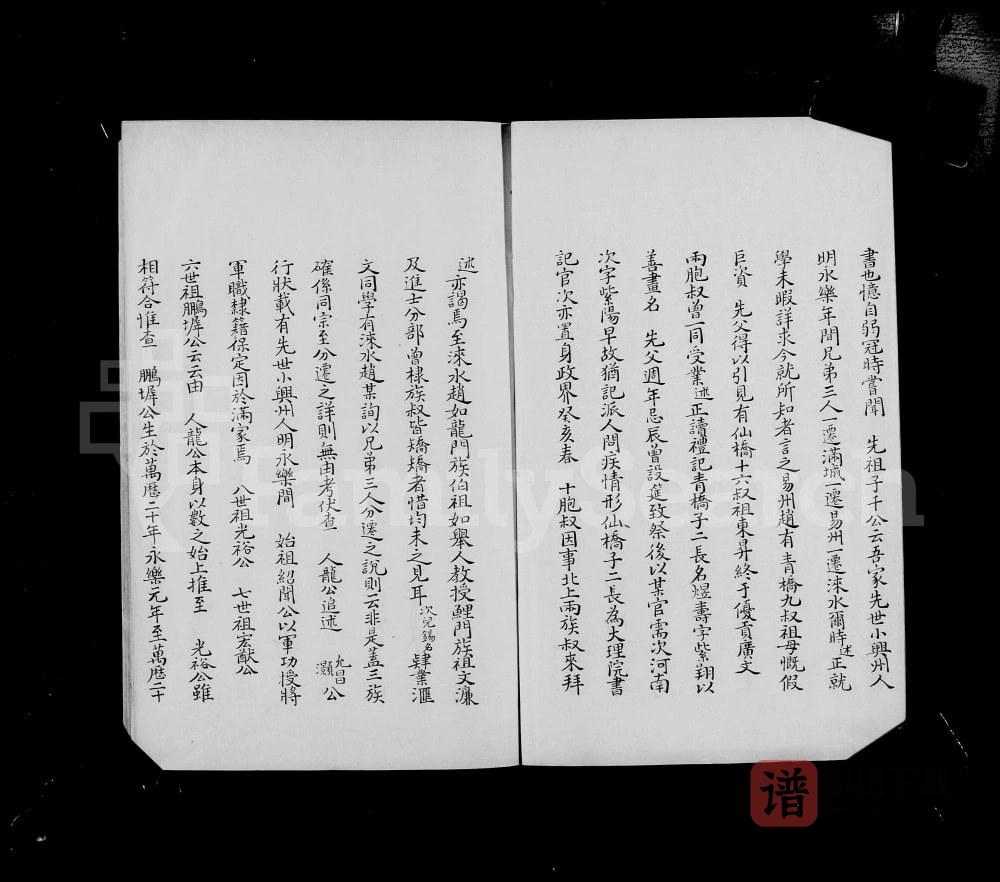 書也憶自弱冠時嘗聞 先祖子千公云吾家先世小興州人
明永樂年間兄弟三人一遷滿城一遷易州一遷淶水爾時述正就
學未暇詳求今就所知者言之易州趙有青橋九叔祖母慨假
巨資 先父得以引見有仙橋十六叔祖東昇終于優貢廣文
兩胞叔曾一同受業述正讀禮記青橋子二長名煜壽字紫翔以
善畫名 先父週年忌辰曾設筵致祭後以某官需次河南
次字紫陽早故猶記派人問疾情形仙橋子二長為大理院書
記官次亦置身政界癸亥春 十胞叔因事北上兩族叔來拜
述亦謁焉至淶水趙如龍門族伯祖如舉人教授鯉門族祖文濂
及進士分部曾棣族叔皆矯矯者惜均未之見耳次兒錫名肄業滙
文同學有淶水趙某詢以兄弟三人分遷之說則云非是蓋三族
確係同宗至分遷之詳則無由考伏查 人龍公追述 九昌灝公
行狀載有先世小興州人明永樂間 始祖紹聞公以軍功授將
軍職隸籍保定因於滿家焉 八世祖光裕公 七世祖宏猷公
六世祖鵬墀公云云由 人龍公本身以數之始上推至 光裕公雖
相符合惟查 鵬墀公生於萬曆二十年永樂元年至萬曆二十
FamilySearch
谱